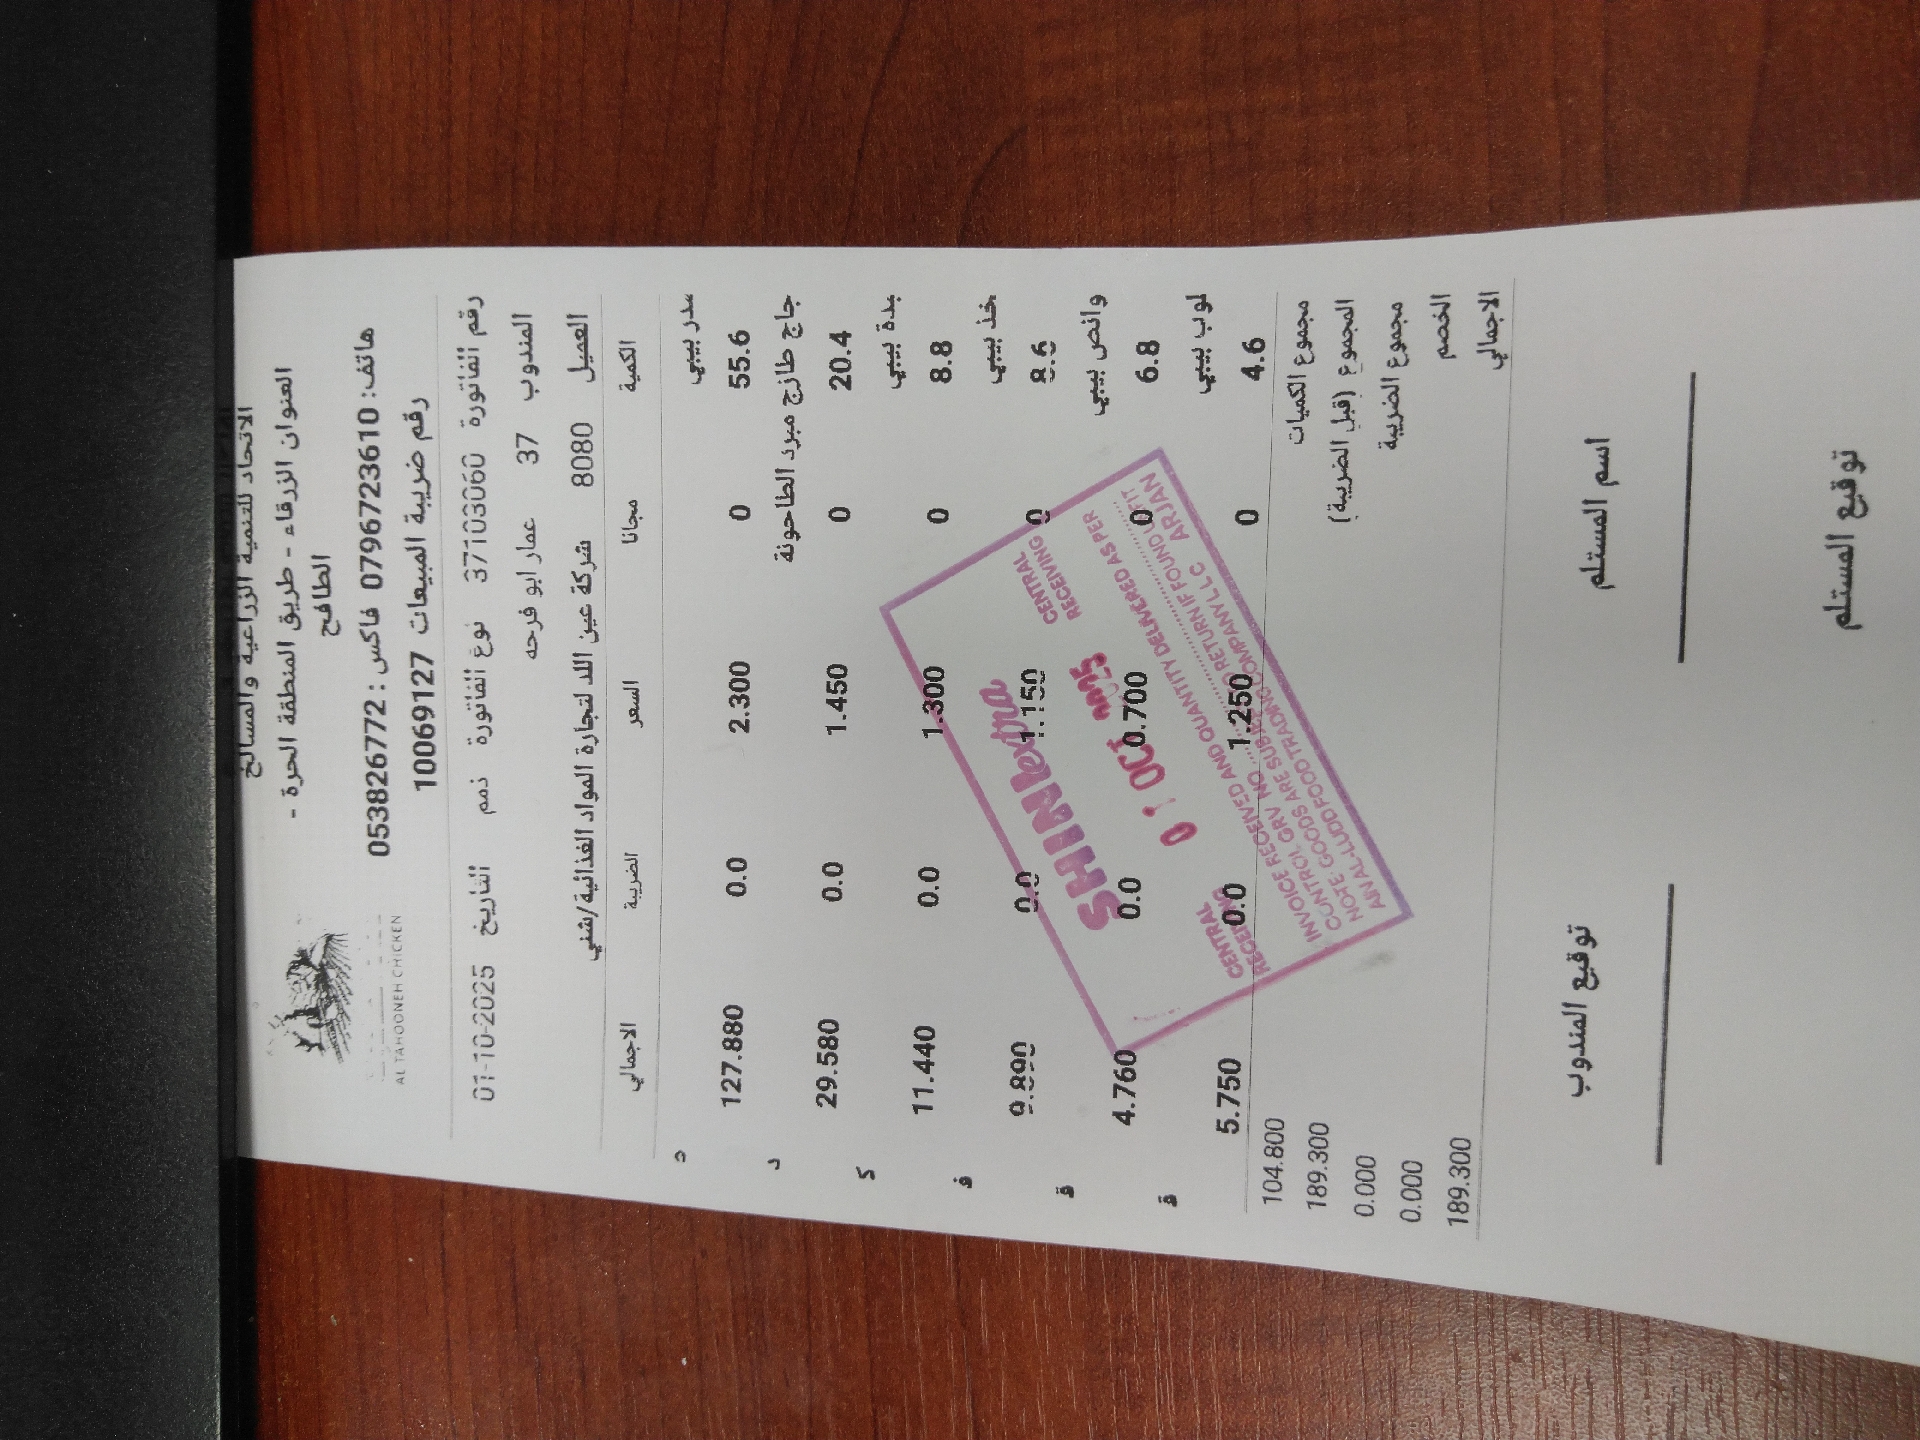 الاتحاد للتنمية الزراعية والمسالخ
العنوان الزرقاء - طريق المنطقة الحرة -
الطافح
هاتف: 0796723610 فاكس: 053826772
رقم ضريبة المبيعات 10069127
AL TAHOONEH CHICKEN
رقم الفاتورة 37103060 نوع الفاتورة ذمم التاريخ 01-10-2025
المندوب 37 عمار ابو فرحه
العميل 8080 شركة عين اللد لتجارة المواد الغذائية/شني
الكمية مجانا السعر الضريبة الاجمالي
سدر بيبي
55.6 0 2.300 0.0 127.880
جاج طازج مبرد الطاحونة
20.4 0 1.450 0.0 29.580
بدة بيبي
8.8 0 1.300 0.0 11.440
خذ بيبي
8.6 0 1.150 0.0 9.890
وانص بيبي
6.8 0 0.700 0.0 4.760
لوب بيبي
4.6 0 1.250 0.0 5.750
مجموع الكميات 104.800
المجموع (قبل الضريبة) 189.300
مجموع الضريبة 0.000
الخصم 0.000
الاجمالي 189.300
CENTRAL RECEIVING
SHINI extra
CENTRAL RECEIVING
01 OCT 2025
INVOICE RECEIVED AND QUANTITY DELIVERED AS PER
CONTROL GRV NO
NOTE: GOODS ARE SUBJECT TO RETURN IF FOUND UNFIT
AIN AL-LUDD FOOD TRADING COMPANY L.L.C ARJAN
توقيع المندوب
اسم المستلم
توقيع المستلم